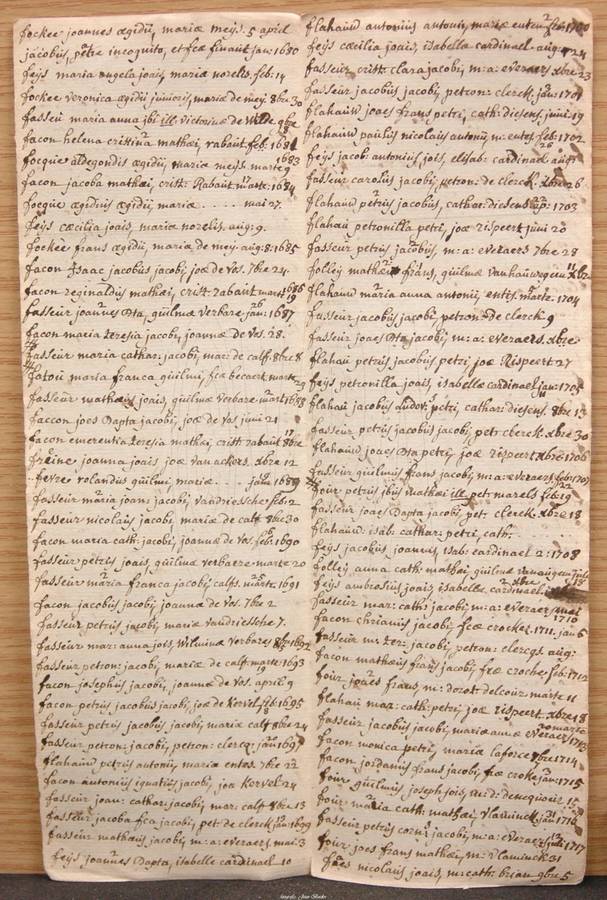 fockee joannes ægidii, mariæ meijs. 5 april
jacobus, patre incognito, et fcæ finaut jan: 1680
feijs maria angela joais, mariæ norelis. feb: 14
fockee veronica ægidii junioris, mariæ de meij. 8bre 20
fasseu maria anna jbi ill: victorinæ de Wilde
facon helena cristina mathæi, rabaut feb: 1681
focque aldegondis ægidii, mariæ meijs. marte 9 1683
facon jacoba mathæi, crist: Rabaut marte: 1684
focque ægidius ægidii, mariæ ..... mai 27.
feijs cæcilia joais, mariæ norelis. aug: 9.
fockee frans ægidii, mariæ de meij. aug: 8: 1685
facon isaac jacobus jacobi, joæ de vos. 7bre 24.
facon reginaldus mathæi, crist: rabaut mart: 19 1686
fasseur joannes Bta, guilmæ verbare jan: 26 1687
facon maria teresia jacobi, joannæ de vos. 28.
fasseur maria cathar: jacobi, mar: de calf. 8bre 8
fatou maria franca guilmi, fcæ becaert marte 29
fasseur mathæus joais, guilmæ verbare. mart: 1688
faccon joes Bapta jacobi, joæ de vos juni 21
facon emerentia teresia mathæi, crist: rabaut 17 8bre
freine joanna joais joæ van ackers. xbre 12
..fevre rolandus guilmi, mariæ ... jan: 1689
fasseur maria joan: jacobi, vandriessche feb: 2
fasseur nicolaus jacobi, mariæ de calf 8bre 30
facon maria cath: jacobi, joannæ de vos. feb: 1690
fasseur petrus joais, guilmæ verbaere. marte 20
fasseur maria franca jacobi, calfs. marte 1691
facon jacobus jacobi, joannæ de vos. 7bre 2
fasseur petrus jacobi, mariæ vandriessche 7.
fasseur mar: anna jois, Wilminæ verbare 8bre 1692
fasseur petron: jacobi, mariæ de calf. marte 19 1693
facon josephus jacobi, joannæ de vos. april 9
facon petrus jacobus jacobi, joæ de Kervel. feb: 1695
fasseur petrus jacobus jacobi, mariæ calf 8bre 24
fasseur petron: jacobi, petron: clercq. jan: 1697
flahaut petrus antonii, mariæ entes 7bre 22
facon antonius ignatius jacobi, joæ Kervel 24
fasseur joan: cathar: jacobi, mar: calf 8bre 13
fasseur jacoba fca jacobi, pet: de clerck jan: 1699
fasseur mathæus jacobi, m: a: everaers mai: 3
feijs joannes Bapta, isabellæ cardinael 10
flahauw antonius antonii, mariæ enten feb: 1700
feijs cæcilia joais, isabella cardinael. aug: 24
fasseur crist: clara jacobi, m: a: everaers xbre 23
fasseur jacobus jacobi, petron: clerck. jan: 1701
flahauw joaes frans petri, cath: diesens. juni 19
flahauw paulus nicolaus antonii, m: entes feb: 1702
feijs jacob: antonius jois, elisab: cardinael aug: 26
fasseur carolus jacobi, petron: de clerck. xbre 26
flahauw petrus jacobus, cathar: diesens ap: 1703
flahauw petronilla petri, joæ rispeert juni 20
fasseur petrus jacobus, m: a: everaers 7bre 28
folleij mathæus frans, guilmæ vanhauwegem 11 xbre
flahauw maria anna antonii, entis. marte 1704
fasseur jacobus jacobi, petron: de clerck 9
fasseur joaes Bta jacobi, m: a: everaers. xbre
flahau petrus jacobus petri joæ Rispeert 27
feijs petronilla joais, isabellæ cardinael jan: 1705
flahau jacobus ludov: petri, cathar: diesens. 8bre 15
fasseur petrus jacobus jacobi, pet: clerck. xbre 30
flahauw joaes Bta petri, joæ rispeert xbre 1706
fasseur guilmus frans jacobi, m: a: everaers feb: 1707
four petrus jbus mathæi ill: pet: marels feb: 19
fasseur joaes Bapta jacobi, pet: clerck. xbre 18
flahauw. isab: cathar: petri, cath: ....
feijs jacobus joannis, isab: cardinael 2: 1708
folleij anna cath: mathæi, guilmæ
feijs ambrosius joais, isabellæ cardinael
fasseur mar: cath: jacobi, m: a: everaers mai 1710
facon chrianus jacobi, fcæ crocket. 1711. jan: 6
fasseur m: ter: jacobi, petron: clercqs. aug:
facon mathæus frans jacobi, fcæ croche, feb: 1712
four joaes frans, m: dorot: delcour. marte 11
flahau mar: cath: petri, joæ rispeert. xbre 18
fasseur jacobus jacobi, mariæ annæ everaers 1713
facon monica petri, mariæ laforce 8bre 1714
facon jordanus frans jacobi, fcæ croke jan: 1715
four guilmus joseph jois, m: d: denequour 15
four maria cath: mathæi, vlaminck jan: 1716
fasseur petrus corn: jacobi, m: a: everaers 1717
four joes frans mathæi, m: vlaminck 31
faes nicolaus joais, m: cath: brian 9bre 5